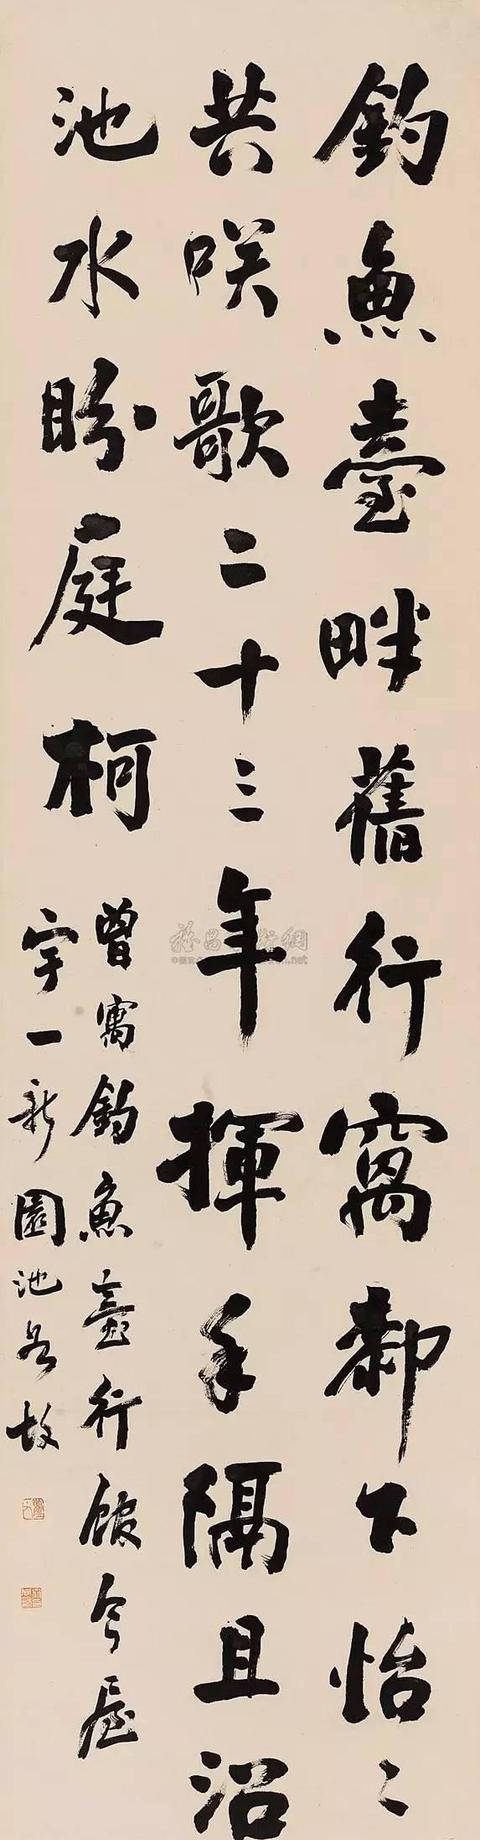 釣魚臺畔舊行窩都下怡〻
共咲歌二十三年揮手隔且沿
池水盼庭柯
曾寓釣魚臺行館今屋
宇一新園池若故